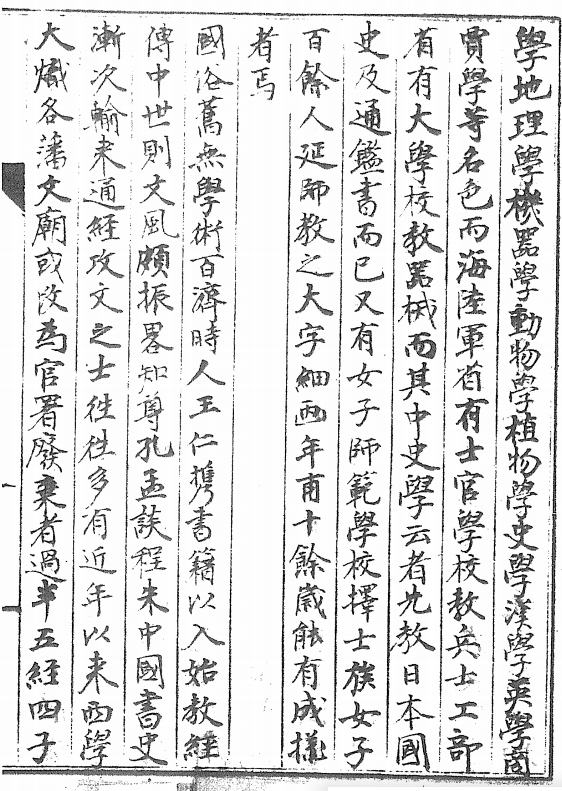 學地理學機器學動物學植物學史學漢學英學商
賈學等名色而海陸軍省有士官學校教兵士工部
省有大學校教器械而其中史學云者先教日本國
史及通鑑書而已又有女子師範學校擇士族女子
百餘人延師教之大字細畫年甫十餘歲能有成樣
者焉
國俗舊無學術百濟時人王仁携書籍以入始教經
傳中世則文風頗振畧知尊孔孟談程朱中國書史
漸次輸来通經攻文之士徃徃多有近年以来西學
大熾各藩文廟或改為官署廢棄者過半五經四子